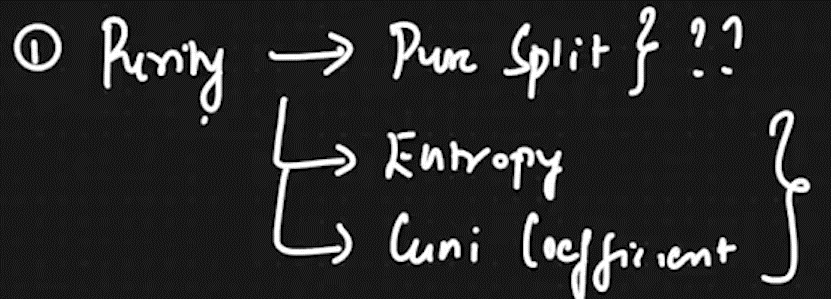 ① Purity → Pure Split } ??
→ Entropy
→ Guni Coefficient }